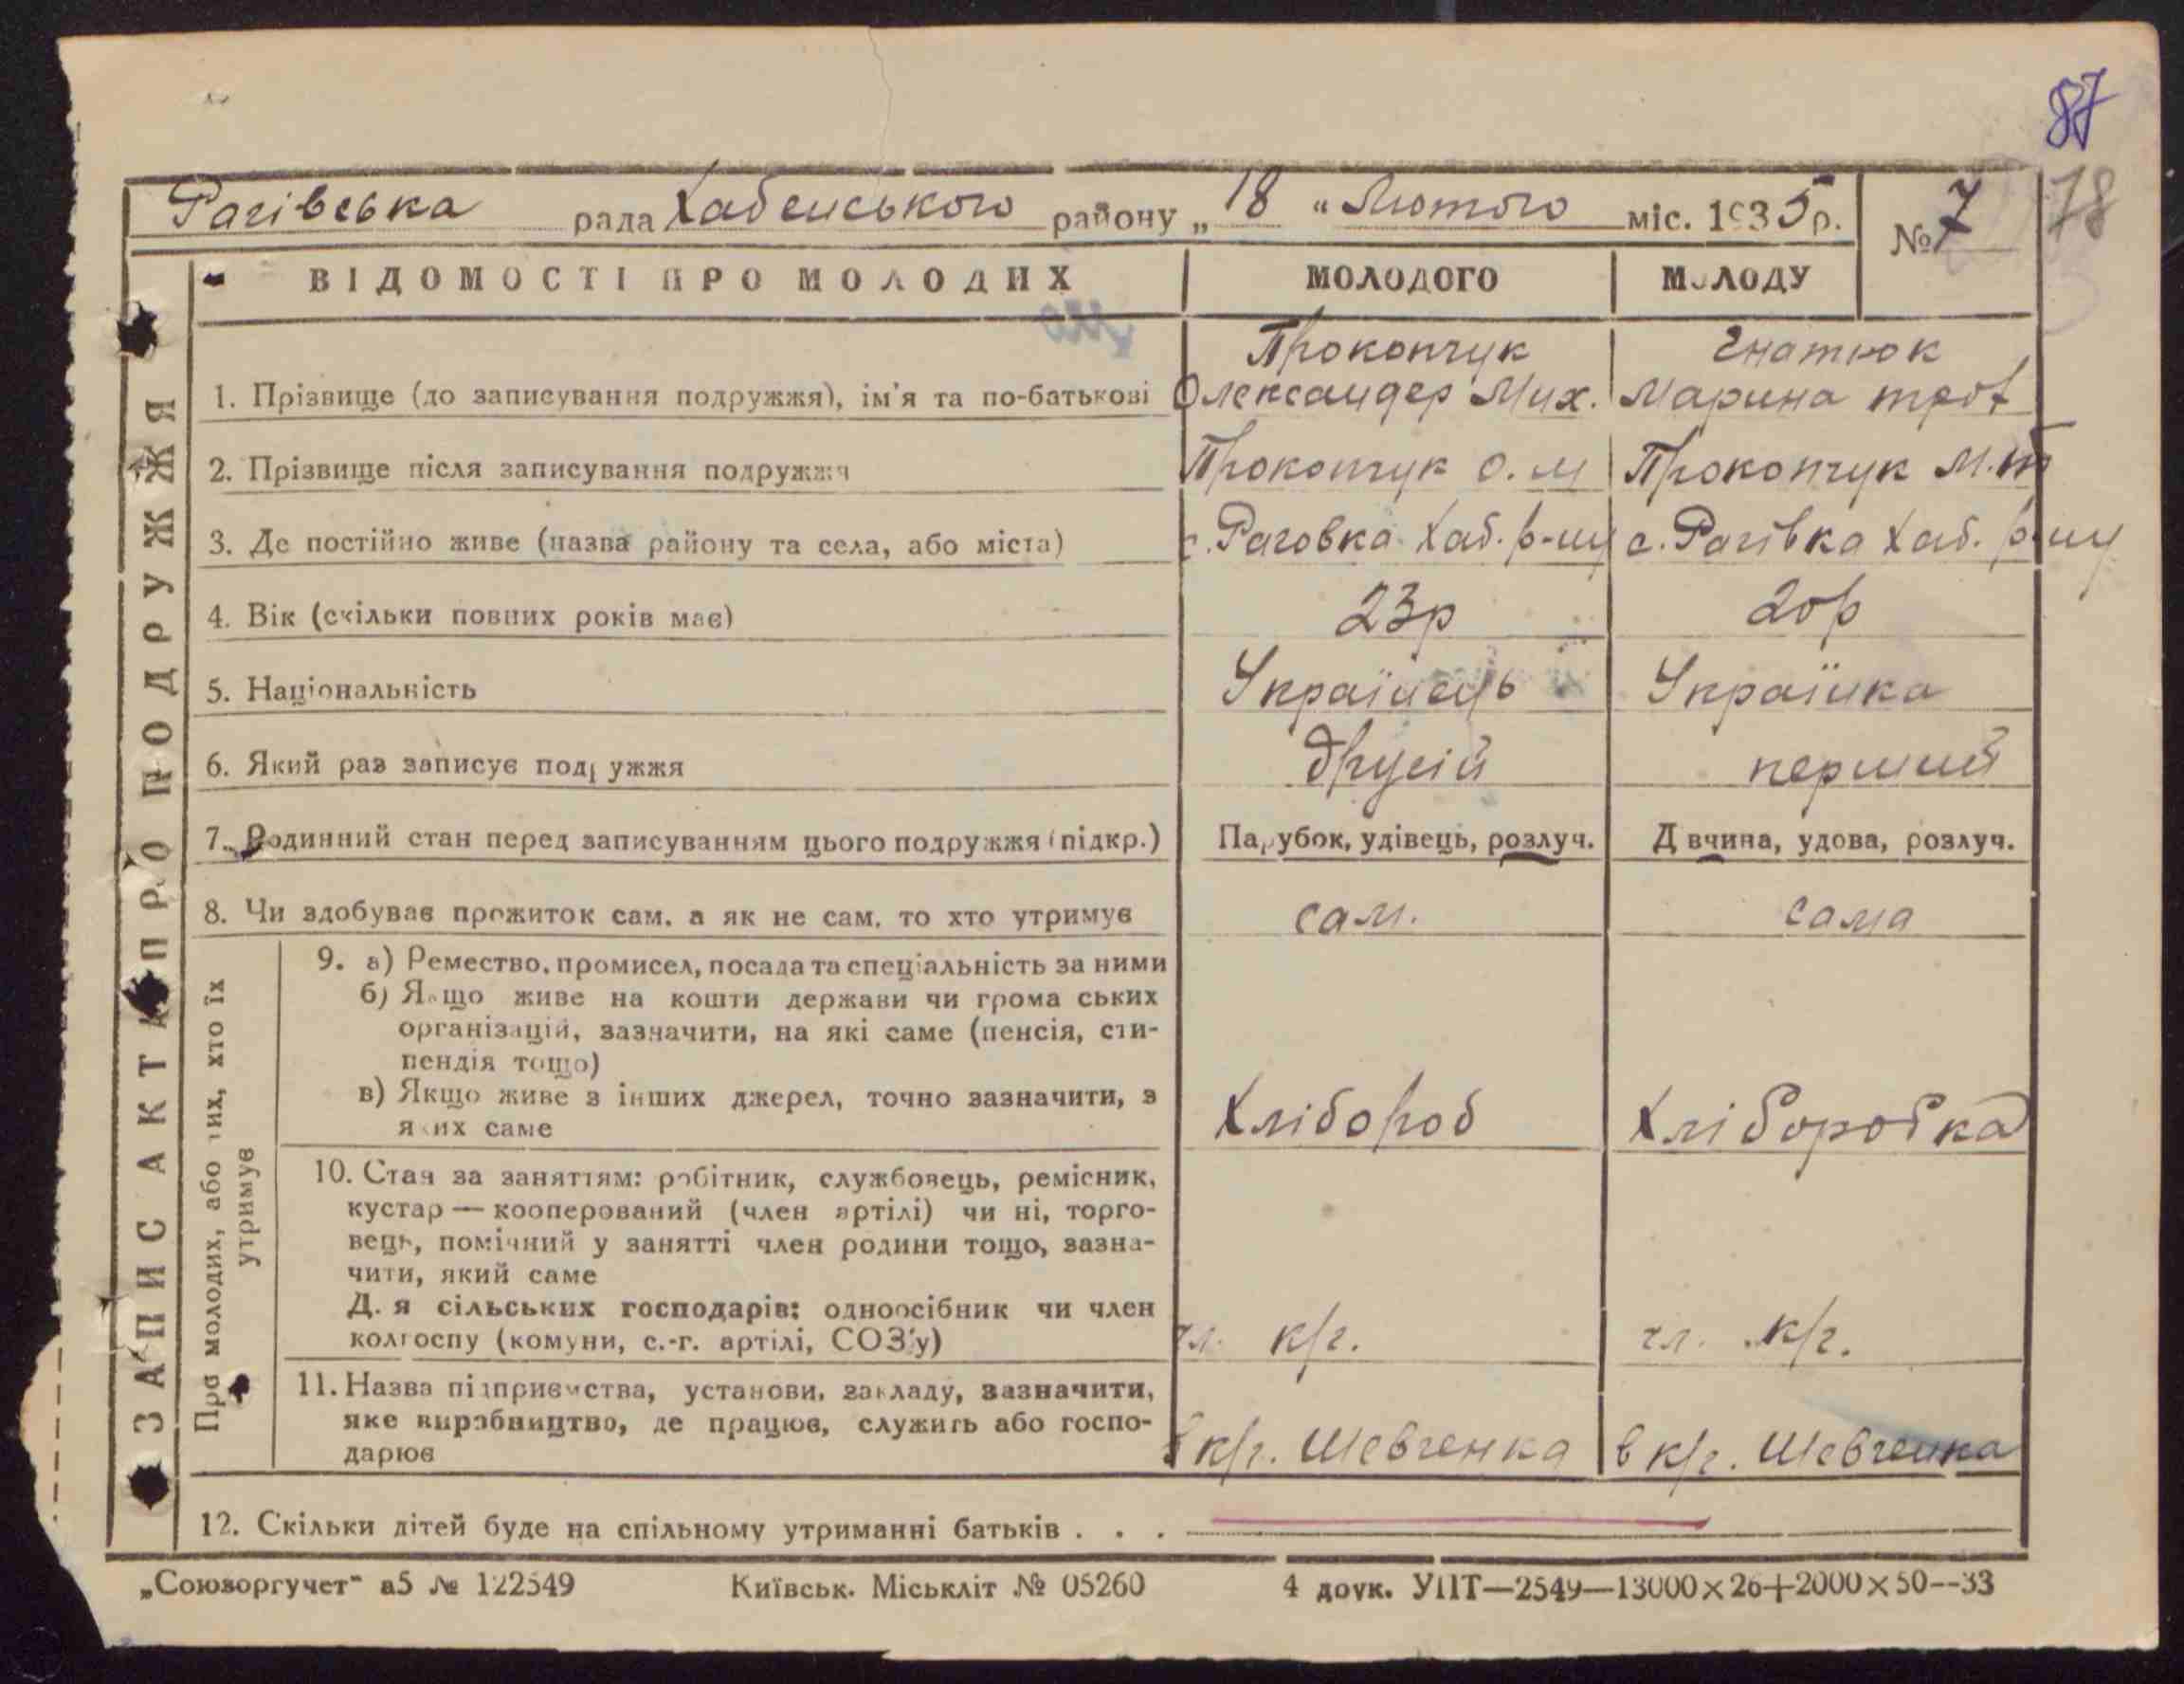 87
78
Рагівська рада Хабенського району „18“ Лютого міс. 1935р. № 7
ВІДОМОСТІ ПРО МОЛОДИХ
МОЛОДОГО
МОЛОДУ
ЗАПИС АКТА ПРО ПОДРУЖЖЯ
Прокопчук Гнатюк
1. Прізвище (до записування подружжя), ім'я та по-батькові Олександер Мих. Марина
2. Прізвище після записування подружжя Прокопчук О. М Прокопчук М.т
3. Де постійно живе (назва району та села, або міста) с. Раговка Хаб. р-ну с. Рагівка Хаб. р-ну
4. Вік (скільки повних років має) 23р 20р
5. Національність Українець Українка
6. Який раз записує подружжя другій перший
7. Родинний стан перед записуванням цього подружжя (підкр.) Парубок, удівець, розлуч. Дівчина, удова, розлуч.
8. Чи здобуває прожиток сам, а як не сам, то хто утримує сам. сама
Про молодих, або тих, хто їх
утримує
9. а) Ремество, промисел, посада та спеціальність за ними
б) Якщо живе на кошти держави чи громадських
організацій, зазначити, на які саме (пенсія, сти-
пендія тощо)
в) Якщо живе з інших джерел, точно зазначити, з
яких саме Хлібороб Хліборобка
10. Стан за заняттям: робітник, службовець, ремісник,
кустар — кооперований (член артілі) чи ні, торго-
вець, помічний у занятті член родини тощо, зазна-
чити, який саме
Для сільських господарів: одноосібник чи член
колгоспу (комуни, с.-г. артілі, СОЗ'у) чл. к/г. чл. к/г.
11. Назва підприємства, установи, закладу, зазначити,
яке виробництво, де працює, служить або госпо-
дарює в к/г. Шевченка в к/г. Шевченка
12. Скільки дітей буде на спільному утриманні батьків . . .
„Союзоргучет“ а5 № 122549 Київськ. Міськліт № 05260 4 друк. УПТ—2549—13000×26+2000×50--33